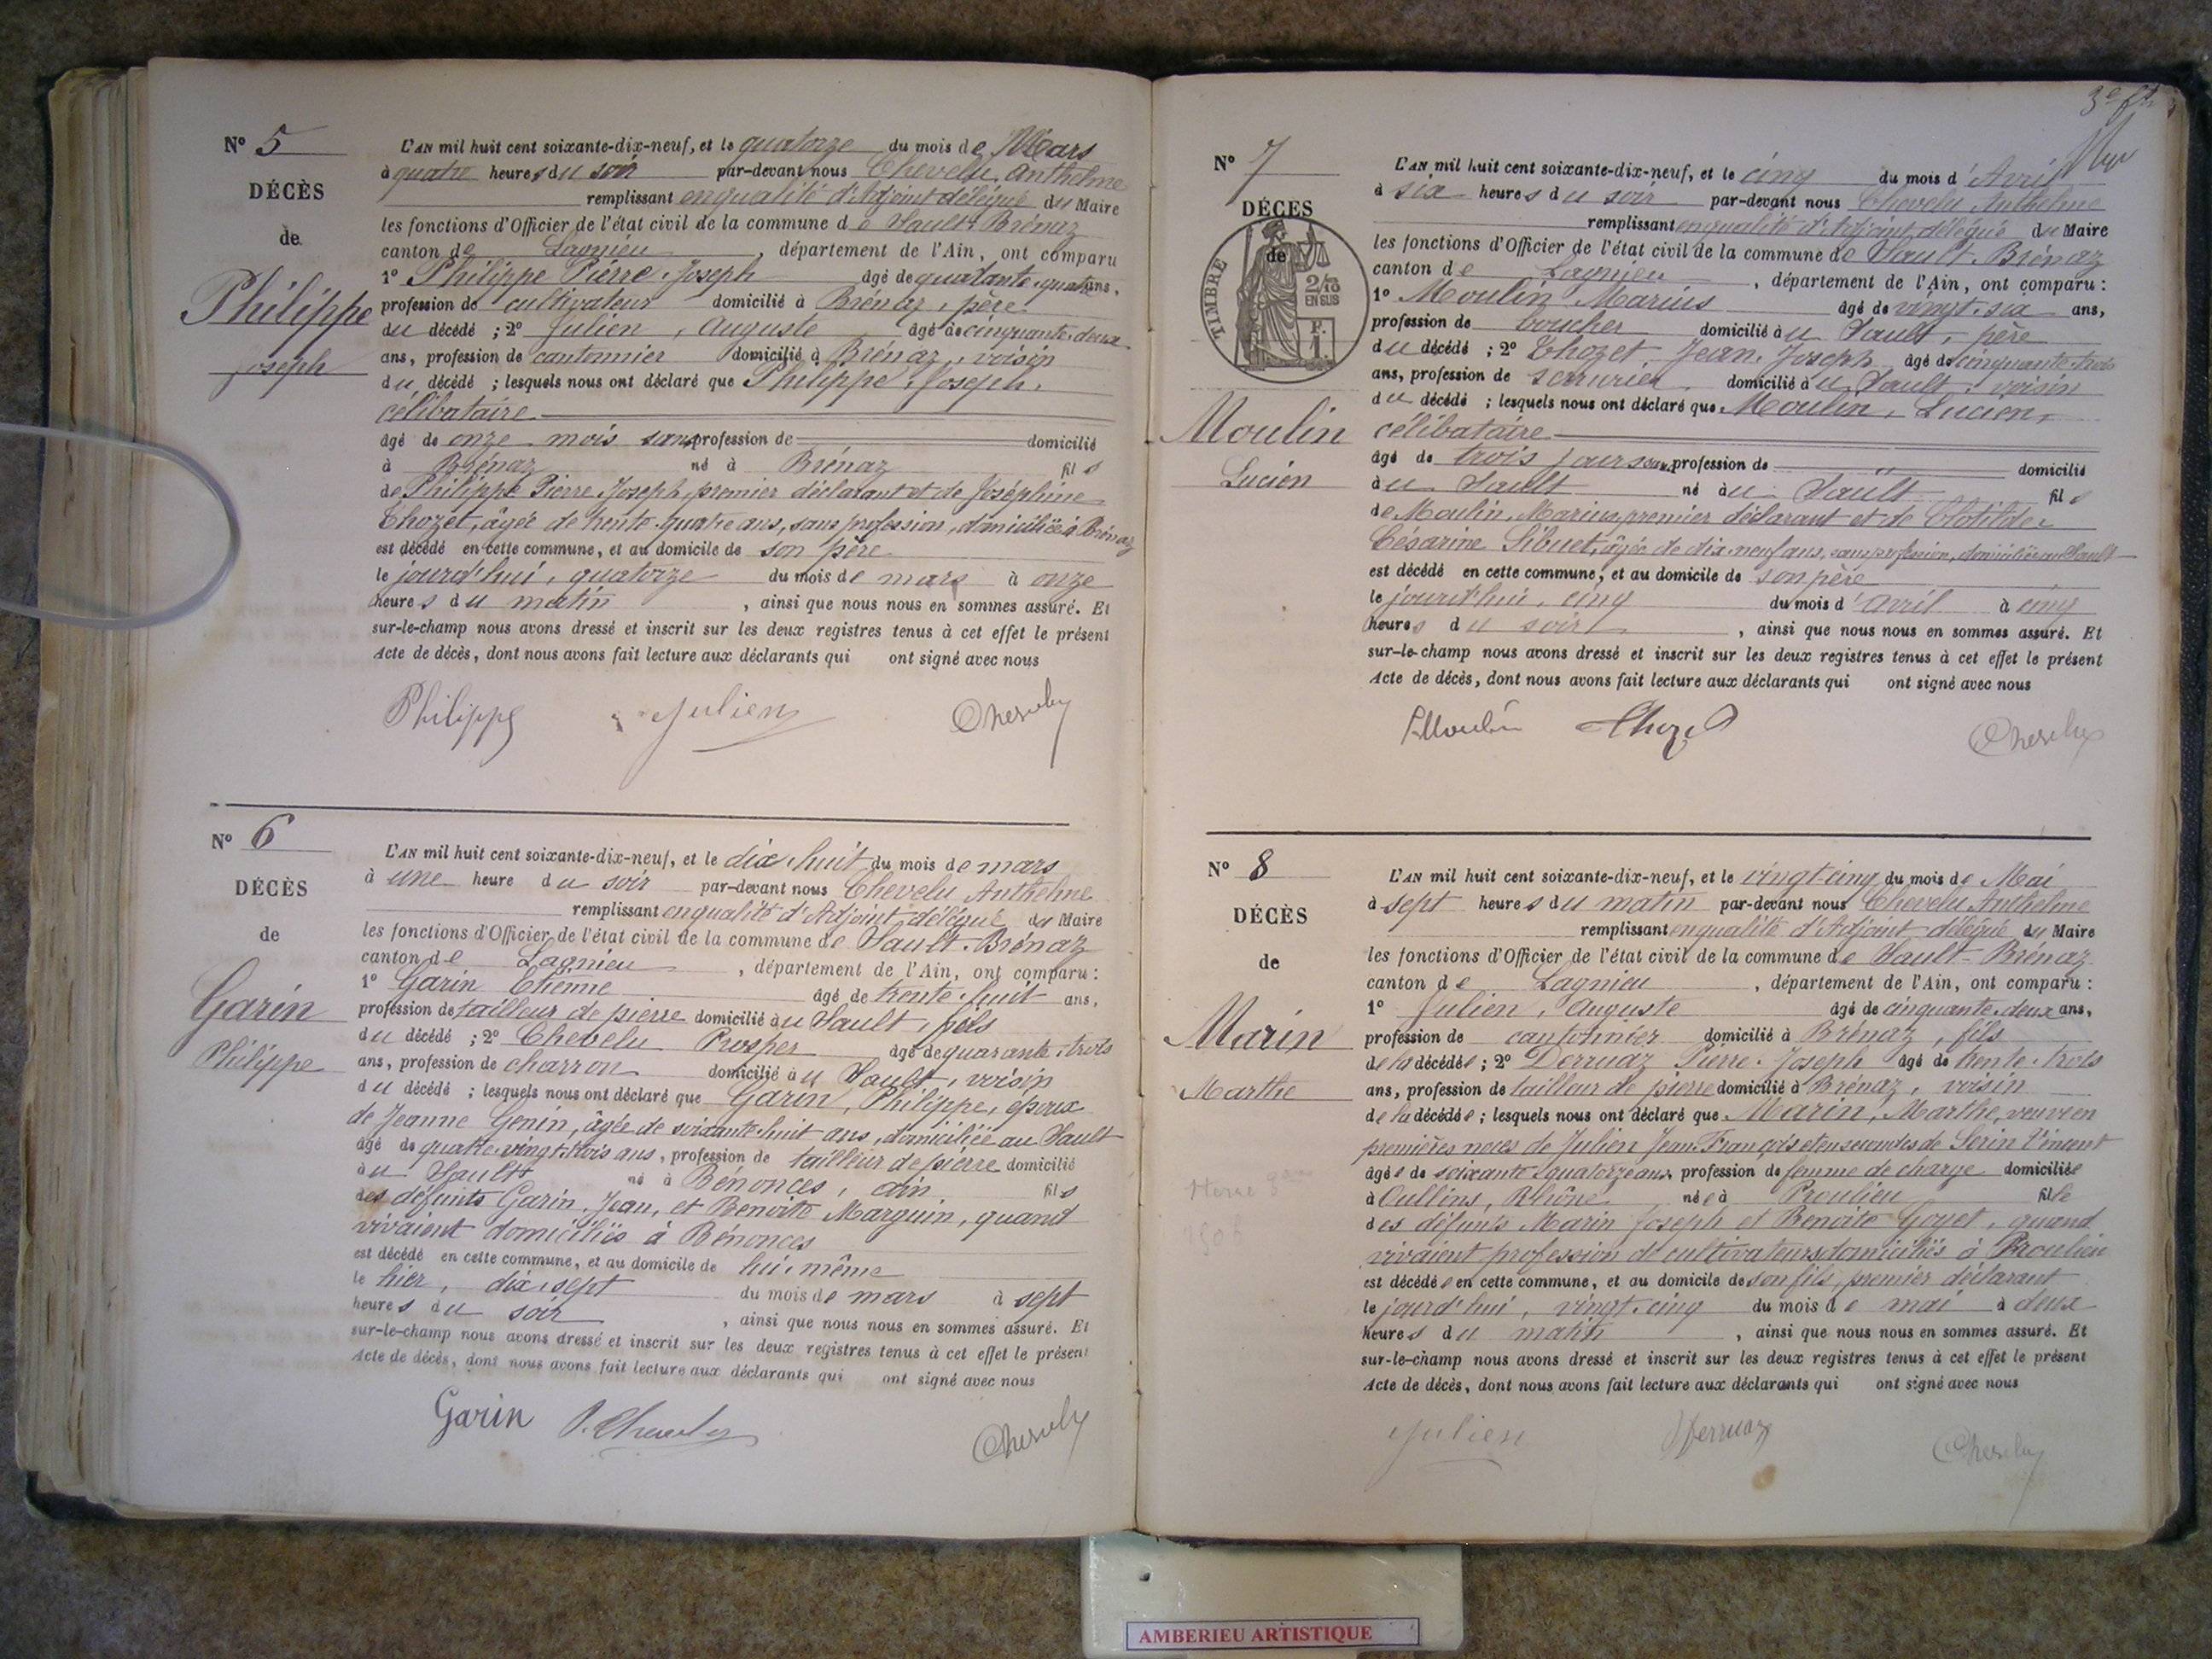 N° 5
DÉCÈS
de
Philippe
Joseph
L'AN mil huit cent soixante-dix-neuf, et le quatorze du mois de Mars
à quatre heures du soir par-devant nous Chevelu Anthelme
remplissant en qualité d'Adjoint délégué du Maire
les fonctions d'Officier de l'état civil de la commune de Sault-Brénaz
canton de Lagnieu, département de l'Ain, ont comparu
1° Philippe Pierre-Joseph âgé de quarante-quatre ans,
profession de cultivateur domicilié à Brénaz, père
du décédé ; 2° Julien, Auguste âgé de cinquante-deux
ans, profession de cantonnier domicilié à Brénaz, voisin
du décédé ; lesquels nous ont déclaré que Philippe, Joseph,
célibataire
âgé de onze mois sans profession de domicilié
à Brénaz né à Brénaz fils
de Philippe Pierre-Joseph, premier déclarant et de Joséphine
Thozet, âgée de trente-quatre ans, sans profession, domiciliée à Brénaz
est décédé en cette commune, et au domicile de son père
le jourd'hui, quatorze du mois de mars à onze
heures du matin, ainsi que nous nous en sommes assuré. Et
sur-le-champ nous avons dressé et inscrit sur les deux registres tenus à cet effet le présent
Acte de décès, dont nous avons fait lecture aux déclarants qui ont signé avec nous
Philippe Julien Chevelu
N° 6
DÉCÈS
de
Garin
Philippe
L'AN mil huit cent soixante-dix-neuf, et le dix-huit du mois de mars
à une heure du soir par-devant nous Chevelu Anthelme
remplissant en qualité d'Adjoint délégué du Maire
les fonctions d'Officier de l'état civil de la commune de Sault-Brénaz
canton de Lagnieu, département de l'Ain, ont comparu :
1° Garin Etienne âgé de trente-huit ans,
profession de tailleur de pierre domicilié au Sault, fils
du décédé ; 2° Chevelu Prosper âgé de quarante-trois
ans, profession de charron domicilié au Sault, voisin
du décédé ; lesquels nous ont déclaré que Garin, Philippe, époux
de Jeanne Genin, âgée de soixante-huit ans, domiciliée au Sault
âgé de quatre-vingt-trois ans, profession de tailleur de pierre domicilié
au Sault né à Bénonces, ain fils
des défunts Garin, Jean, et Benoite Marguin, quand
vivaient domiciliés à Bénonces
est décédé en cette commune, et au domicile de lui-même
le hier, dix-sept du mois de mars à sept
heures du soir, ainsi que nous nous en sommes assuré. Et
sur-le-champ nous avons dressé et inscrit sur les deux registres tenus à cet effet le présent
Acte de décès, dont nous avons fait lecture aux déclarants qui ont signé avec nous
Garin P. Chevelu Chevelu
3e ft
N° 7
DÉCÈS
de
TIMBRE
2/10
EN SUS
F.
1.
Moulin
Lucien
L'AN mil huit cent soixante-dix-neuf, et le cinq du mois d'Avril
à six heures du soir par-devant nous Chevelu Anthelme
remplissant en qualité d'Adjoint délégué du Maire
les fonctions d'Officier de l'état civil de la commune de Sault-Brénaz
canton de Lagnieu, département de l'Ain, ont comparu :
1° Moulin Marius âgé de vingt-six ans,
profession de boucher domicilié au Sault, père
du décédé ; 2° Thozet, Jean-Joseph âgé de cinquante-trois
ans, profession de serrurier domicilié au Sault, voisin
du décédé ; lesquels nous ont déclaré que Moulin, Lucien,
célibataire
âgé de trois jours sans profession de domicilié
au Sault né au Sault fils
de Moulin, Marius premier déclarant et de Clotilde
Césarine Sibuet, âgée de dix-neuf ans, sans profession, domiciliée au Sault
est décédé en cette commune, et au domicile de son père
le jourd'hui, cinq du mois d'avril à cinq
heures du soir, ainsi que nous nous en sommes assuré. Et
sur-le-champ nous avons dressé et inscrit sur les deux registres tenus à cet effet le présent
Acte de décès, dont nous avons fait lecture aux déclarants qui ont signé avec nous
Moulin Thozet Chevelu
N° 8
DÉCÈS
de
Marin
Marthe
L'AN mil huit cent soixante-dix-neuf, et le vingt-cinq du mois de Mai
à sept heures du matin par-devant nous Chevelu Anthelme
remplissant en qualité d'Adjoint délégué du Maire
les fonctions d'Officier de l'état civil de la commune de Sault-Brénaz
canton de Lagnieu, département de l'Ain, ont comparu :
1° Julien, Auguste âgé de cinquante-deux ans,
profession de cantonnier domicilié à Brénaz, fils
de la décédée ; 2° Derruaz Pierre-Joseph âgé de trente-trois
ans, profession de tailleur de pierre domicilié à Brénaz, voisin
de la décédée ; lesquels nous ont déclaré que Marin, Marthe, veuve en
premières noces de Julien Jean-François et en secondes de Serin Vincent
âgée de soixante-quatorze ans, profession de femme de charge domiciliée
à Oullins, Rhône née à Proulieu fille
des défunts Marin Joseph et Benoite Goyet, quand
vivaient profession de cultivateurs domiciliés à Proulieu
est décédée en cette commune, et au domicile de son fils, premier déclarant
le jourd'hui, vingt-cinq du mois de mai à deux
heures du matin, ainsi que nous nous en sommes assuré. Et
sur-le-champ nous avons dressé et inscrit sur les deux registres tenus à cet effet le présent
Acte de décès, dont nous avons fait lecture aux déclarants qui ont signé avec nous
Julien Derruaz Chevelu
AMBERIEU ARTISTIQUE